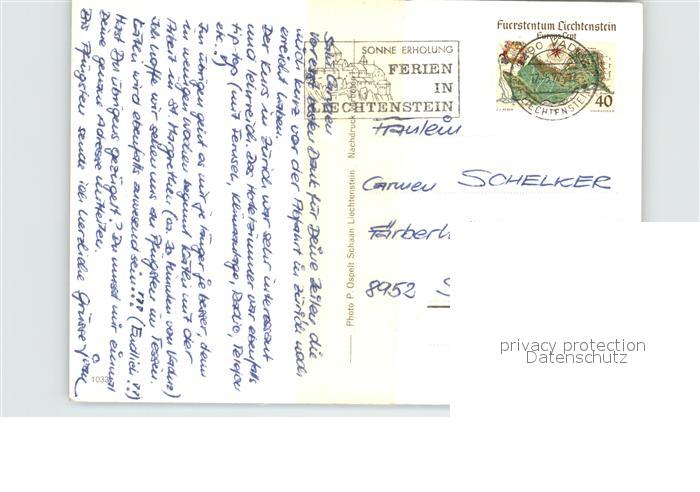 Fuerstentum Liechtenstein
Europa Cept
40
SONNE ERHOLUNG
FERIEN
IN
LIECHTENSTEIN
LIECHTENSTEIN
Fräulein
Carmen SCHELKER
Färberh
8952 S
privacy protection
Datenschutz
Photo P. Ospelt Schaan Liechtenstein Nachdruck
Carmen
Vorerst besten Dank für Deine Zeilen, die
mich kurz vor der Abfahrt in Zürich noch
erreicht haben.
Der Kurs in Zürich war sehr interessant
und lehrreich. Das Hotelzimmer war ebenfalls
tip top (mit Fernseh, Klimaanlage, Radio, Telefon
etc.)
Im übrigen geht es mir je länger je besser, denn
in wenigen Wochen beginnt Käthi mit der
Arbeit in St. Margrethen (ca. 30 Minuten von Vaduz)
Ich hoffe wir sehen uns an Pfingsten im Tessin.
Käthi wird ebenfalls anwesend sein!?! (Endlich!?)
Hast Du übrigens gezügelt? Du musst mir einmal
Deine genaue Adresse mitteilen.
Bis Pfingsten sende ich herzliche Grüsse
1033